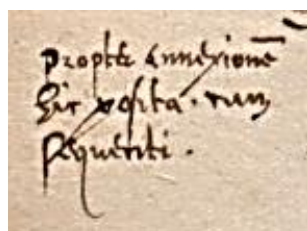 propter annexionē
hic posita. cum
sequēti.